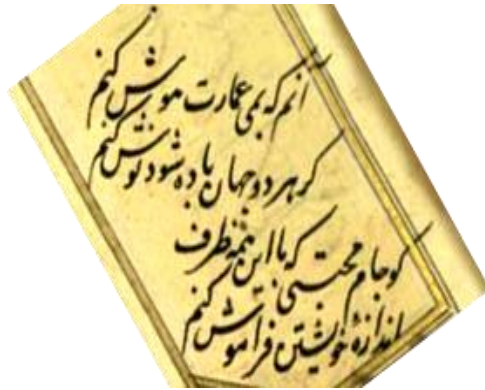 آنم که بمی عمارت هوش کنم
گر هر دو جهان باده شود نوش کنم
کو جام محبتی که با این همه ظرف
اندازهٔ خویشتن فراموش کنم